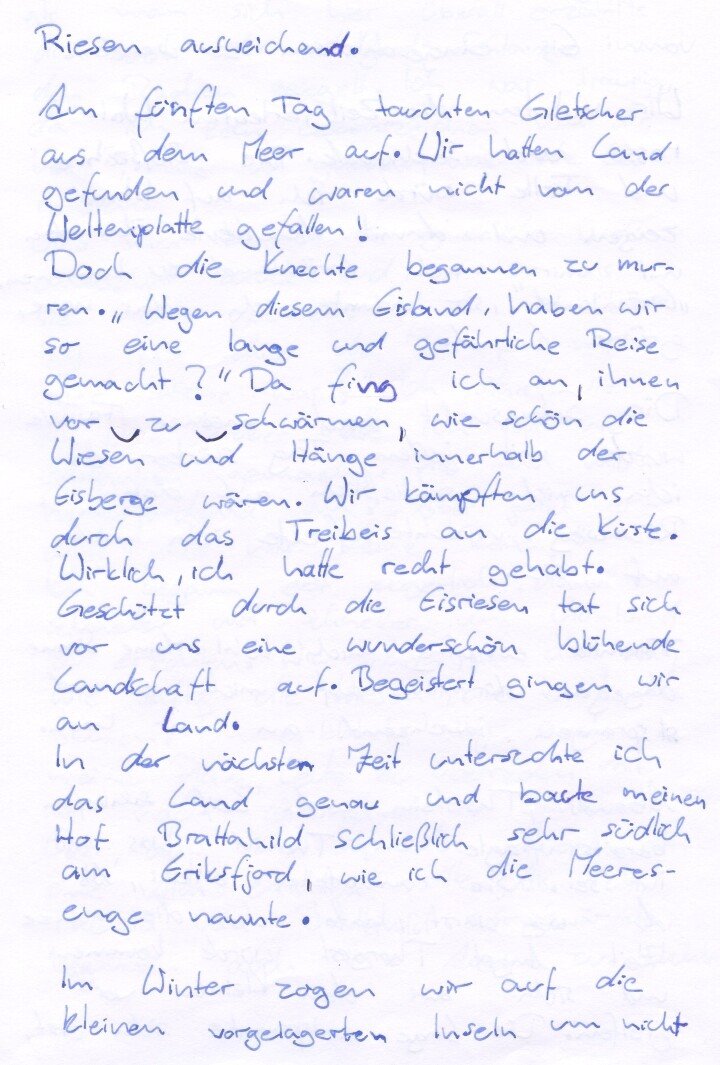 Riesen ausweichend.
Am fünften Tag tauchten Gletscher
aus dem Meer auf. Wir hatten Land
gefunden und waren nicht von der
Weltenplatte gefallen!
Doch die Knechte begannen zu mur-
ren. „Wegen diesem Eisland, haben wir
so eine lange und gefährliche Reise
gemacht?" Da fing ich an, ihnen
vor zu schwärmen, wie schön die
Wiesen und Hänge innerhalb der
Eisberge wären. Wir kämpften uns
durch das Treibeis an die Küste.
Wirklich, ich hatte recht gehabt.
Geschützt durch die Eisriesen tat sich
vor uns eine wunderschön blühende
Landschaft auf. Begeistert gingen wir
an Land.
In der nächsten Zeit untersuchte ich
das Land genau und baute meinen
Hof Brattahild schließlich sehr südlich
am Eriksfjord, wie ich die Meeres-
enge nannte.
Im Winter zogen wir auf die
kleinen vorgelagerten Inseln um nicht